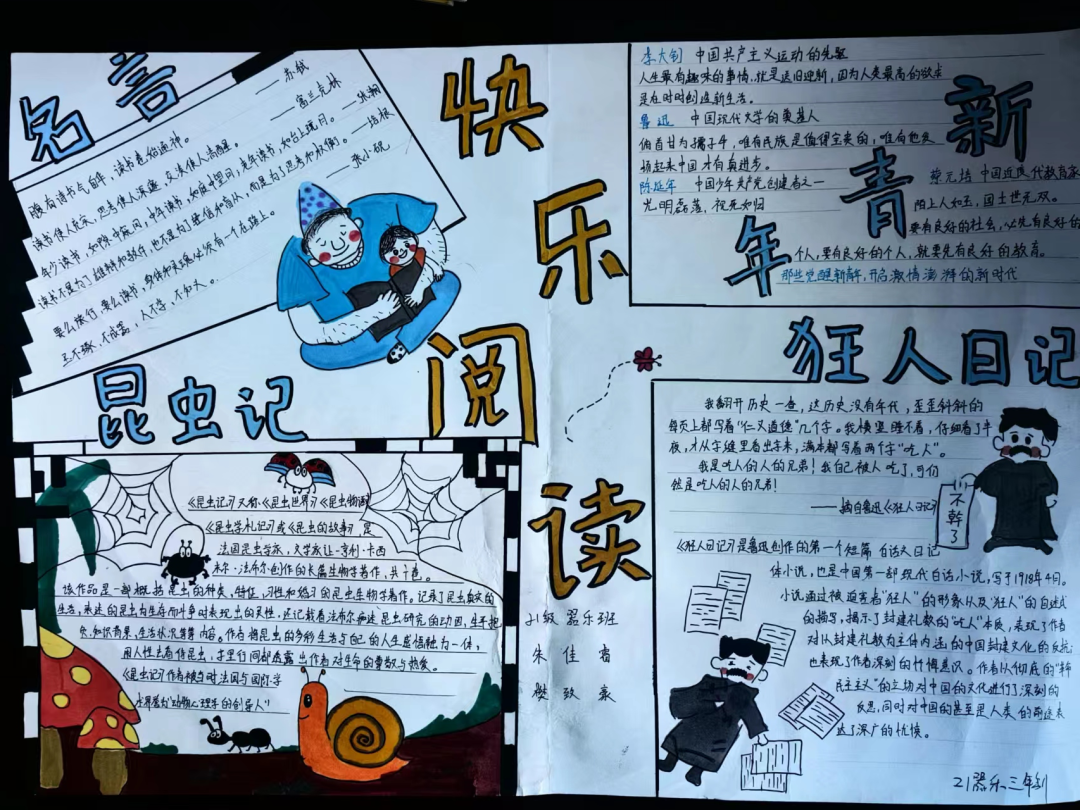 名言
——苏轼
腹有诗书气自华,读书万卷始通神。
——富兰克林
读书使人充实,思考使人深邃,交谈使人清醒。
——张潮
年少读书,如隙中窥月,中年读书,如庭中望月,老年读书,如台上玩月。
——培根
读书不是为了雄辩和驳斥,也不是为了轻信和盲从,而是为了思考和权衡。
要么旅行,要么读书,身体和灵魂必须有一个在路上。
玉不琢,不成器,人不学,不知义。
快乐阅读
新青年
李大钊 中国共产主义运动的先驱
人生最有趣味的事情,就是送旧迎新,因为人类最高的欲求
是在时时创造新生活。
鲁迅 中国现代文学的奠基人
俯首甘为孺子牛,唯有民族是值得宝贵的,唯有他发
扬起来中国才有真进步。
陈延年 中国少年共产党创建者之一
光明磊落,视死如归
蔡元培 中国近民代教育家
陌上人如玉,国士世无双。
要有良好的社会,必先有良好的
个人,要有良好的个人,就要先有良好的教育。
那些觉醒新解,开启激情澎湃的新时代
昆虫记
《昆虫记》又称《昆虫世界》《昆虫物语》
《昆虫学札记》或《昆虫的故事》是
法国昆虫学家,文学家让-亨利·卡西
米尔·法布尔创作的长篇生物学著作,共十卷。
该作品是一部概括昆虫的种类,特征,习性和婚习的昆虫生物学著作。记录了昆虫真实的
生活,表述的昆虫为生存而斗争时表现出的灵性,还记载着法布尔痴迷昆虫研究的动因,生平抱
负,知识背景,生活状况等等内容。作者将昆虫的多彩生活与自己的人生感悟融为一体,
用人性去看待昆虫,字里行间都透露出作者对生命的尊敬与热爱。
《昆虫记》作者被当时法国与国际学
术界誉为"动物心理学的创导人"
21级 器乐班
朱佳睿
狂人日记
我翻开历史一查,这历史没有年代,歪歪斜斜的
每页上都写着"仁义道德"几个字。我横竖睡不着,仔细看了半
夜,才从字缝里看出字来,满本都写着两个字"吃人"。
我是吃人的人的兄弟!我自己被人吃了,可仍
然是吃人的人的兄弟!
——摘自鲁迅《狂人日记》
不幹了
《狂人日记》是鲁迅创作的第一个短篇白话文日记
体小说,也是中国第一部现代白话小说,写于1918年4月。
小说通过被迫害者"狂人"的形象以及"狂人"的自述式
的描写,揭示了封建礼教的"吃人"本质,表现了作者
对以封建礼教为主体内涵的中国封建文化的反抗;
也表现了作者深刻的忏悔意识。作者以彻底的"革命
民主主义"的立场对中国的文化进行了深刻的
反思,同时对中国的甚至是人类的前途表
达了深广的忧愤。
21器乐三年制